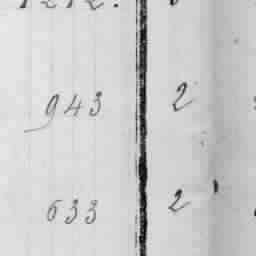 943 2
633 2